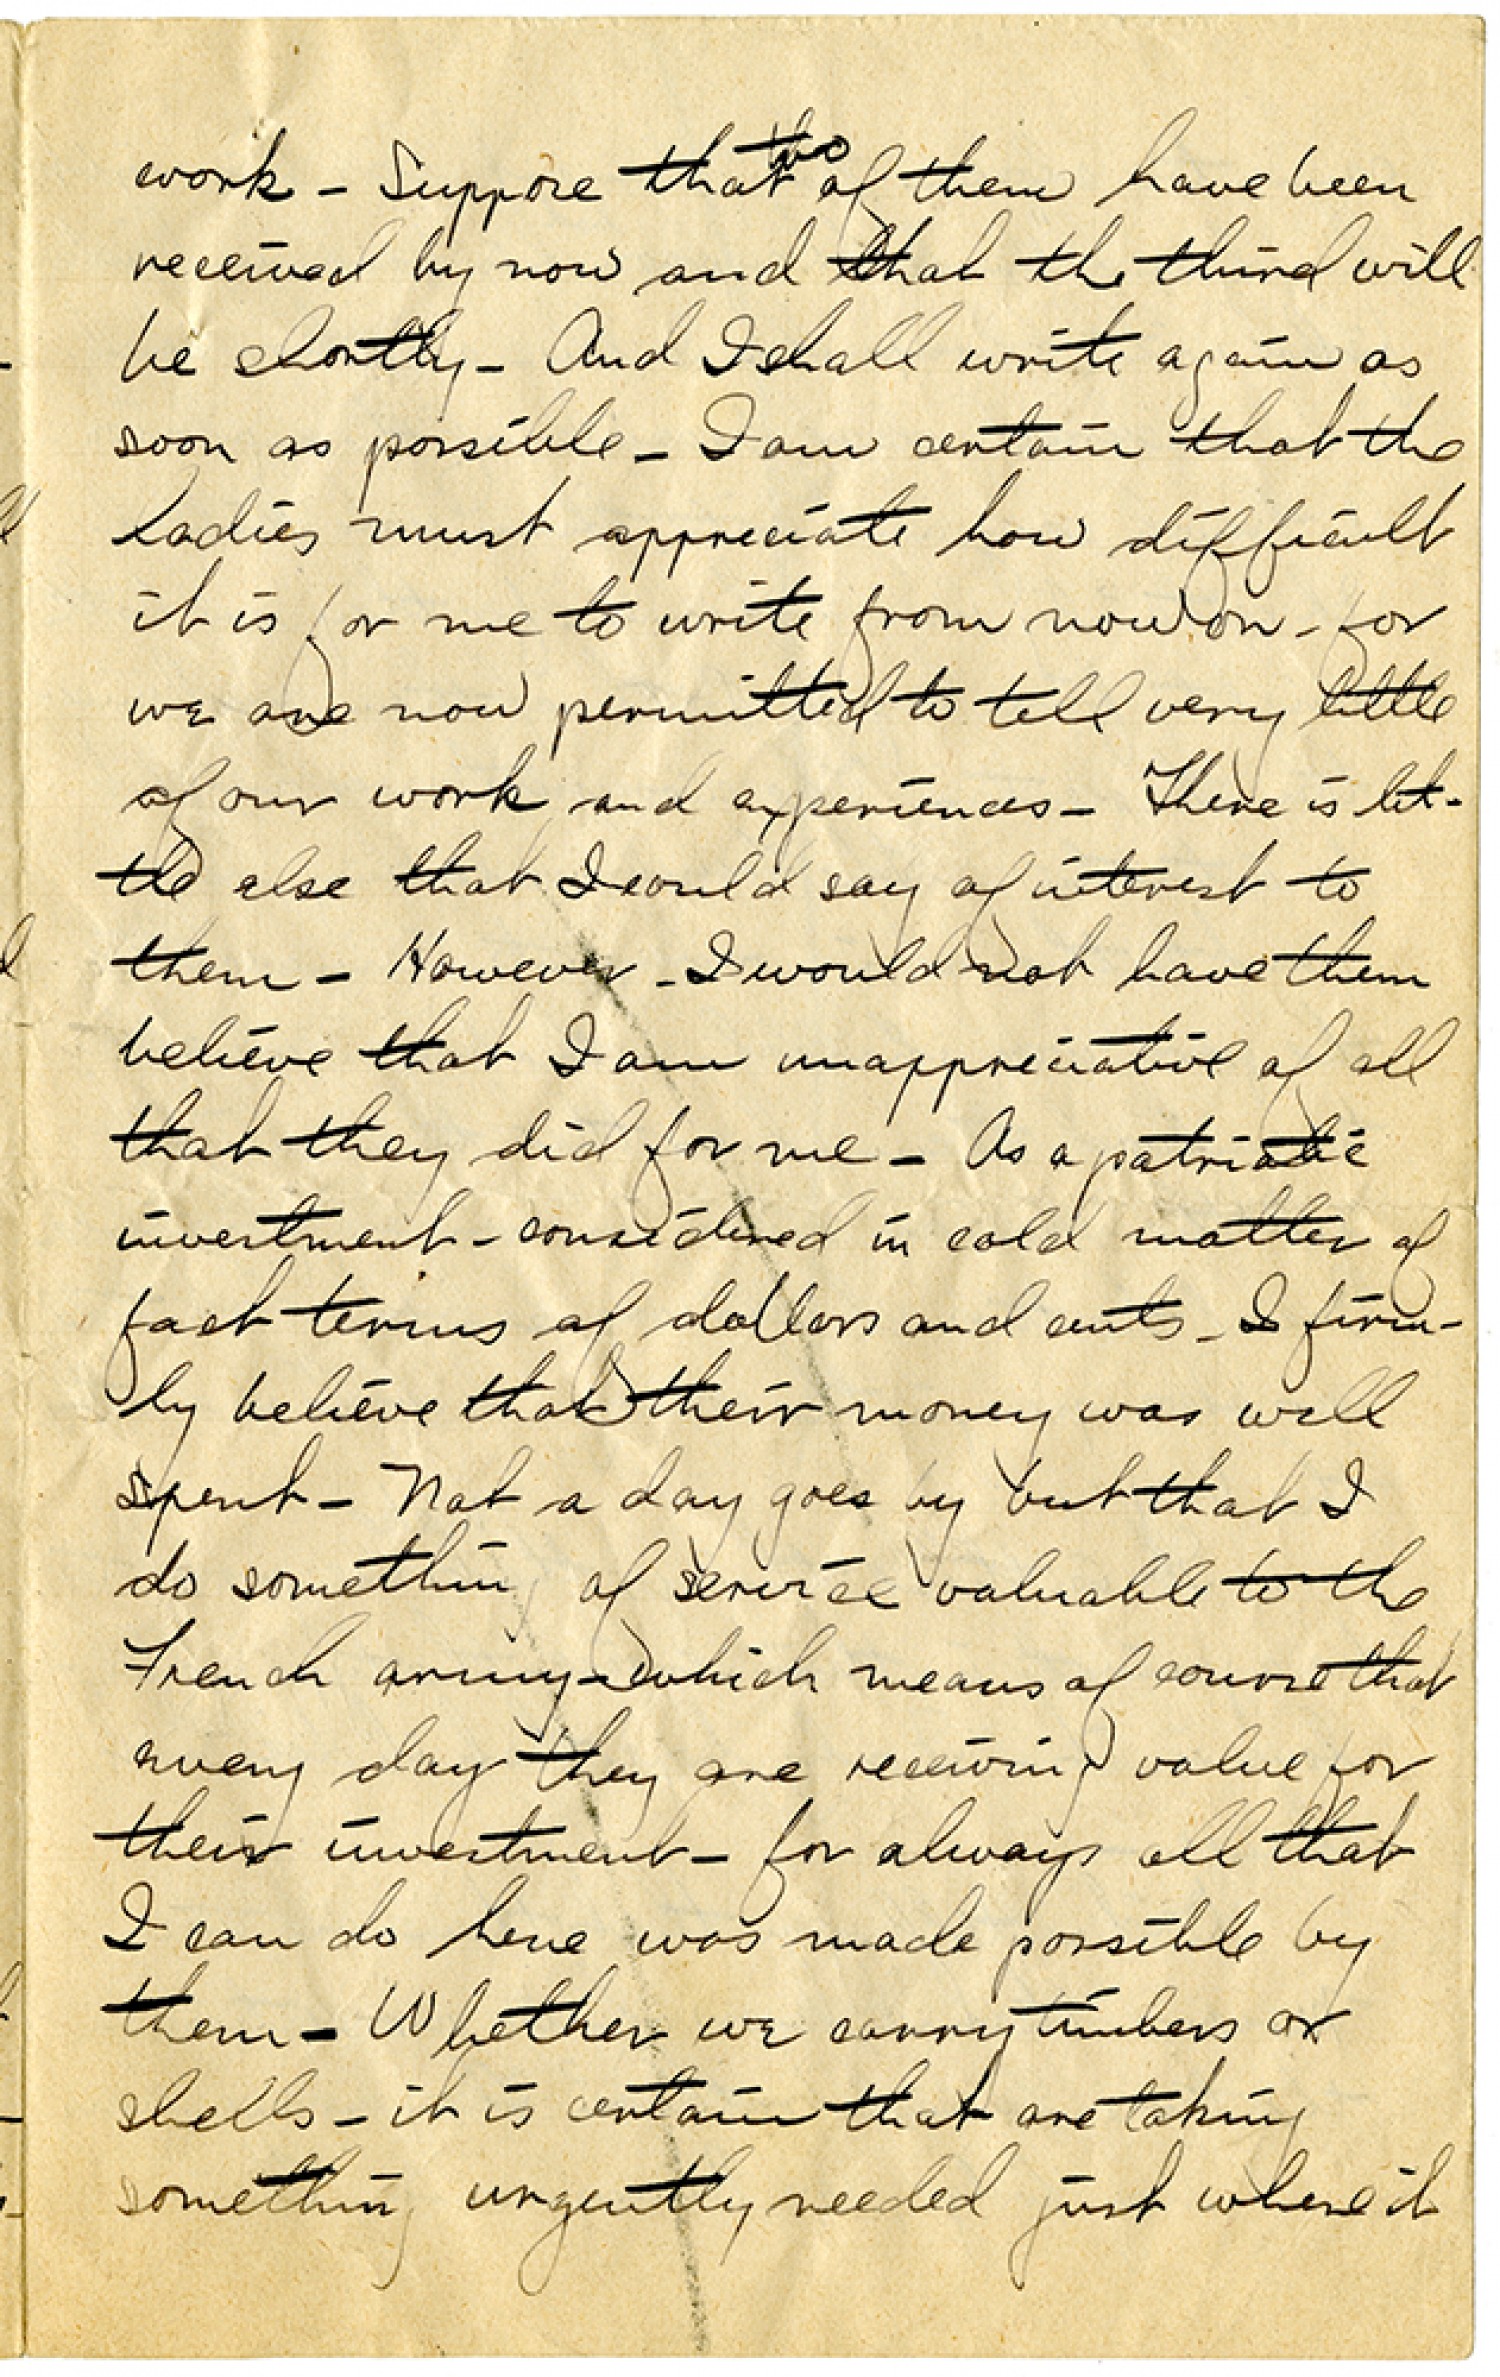 work – Suppose that two of them have been
received by now and that the third will
be shortly – And I shall write again as
soon as possible – I am certain that the
Ladies must appreciate how difficult
it is for me to write from now on – for
we are now permitted to tell very little
of our work and experiences – There is lit-
tle else that I could say of interest to
them – However – I would not have them
believe that I am unappreciative of all
that they did for me – As a patriotic
investment – considered in cold matter of
fact terms of dollars and cents – I firm-
ly believe that their money was well
spent – Not a day goes by but that I
do something of service valuable to the
French army – which means of course that
every day they are receiving value for
their investment – for always all that
I can do here was made possible by
them – Whether we carry timbers or
shells – it is certain that are taking
something urgently needed just where it